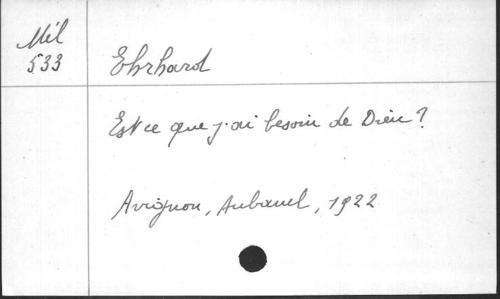 Mél
533
Ehrhard
Est ce que j'ai besoin de Dieu?
Avignon, Aubanel, 1922